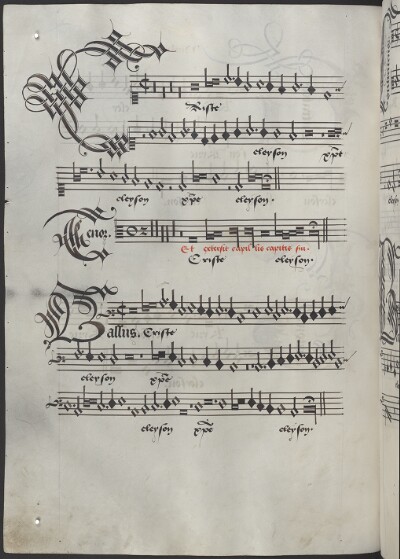 CRiste
eleyson xp̄e
eleyson xp̄e eleyson.
Tenor.
Et capil lis capitis sui.
Criste eleyson.
Bassus. Criste
eleyson xp̄e
eleyson xp̄e eleyson.